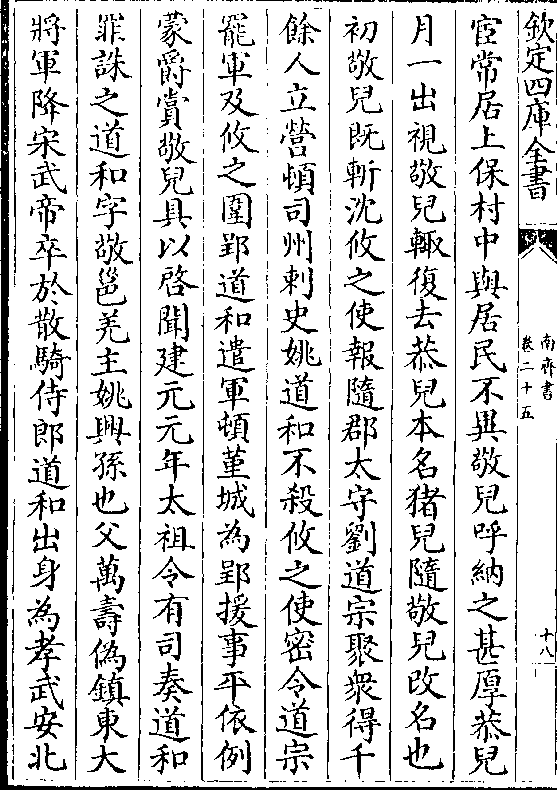 欽定四庫全書
南齊書
卷二十五
十八
宦常居上保村中與居民不異敬兒呼納之甚厚恭兒
月一出視敬兒輙復去恭兒本名猪兒隨敬兒改名也
初敬兒既斬沈攸之使報隨郡太守劉道宗聚衆得千
餘人立營頓司州刺史姚道和不殺攸之使密令道宗
罷軍及攸之圍郢道和遣軍頓菫城為郢援事平依例
蒙爵賞敬兒具以啓聞建元元年太祖令有司奏道和
罪誅之道和字敬邕羌主姚興孫也父萬壽偽鎮東大
將軍降宋武帝卒於散騎侍郎道和出身為孝武安北